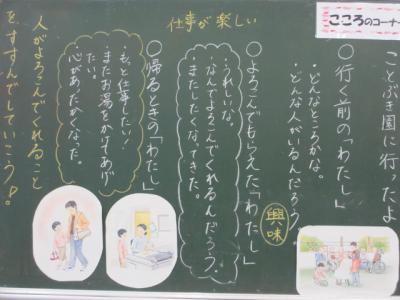 こころのコーナー
仕事が楽しい
ことぶき園に行ったよ
○行く前の「わたし」
・どんなところかな。
・どんな人がいるんだろう。
興味
○よろこんでもらえた「わたし」
・うれしいな。
・なんでよろこんでくれるんだろう。
・またしたくなってきた。
○帰るときの「わたし」
・もっと仕事したい!
・またお湯をかけてあげたい。
・心があたたかくなった。
人がよろこんでくれること
をすすんでしていこう♪。